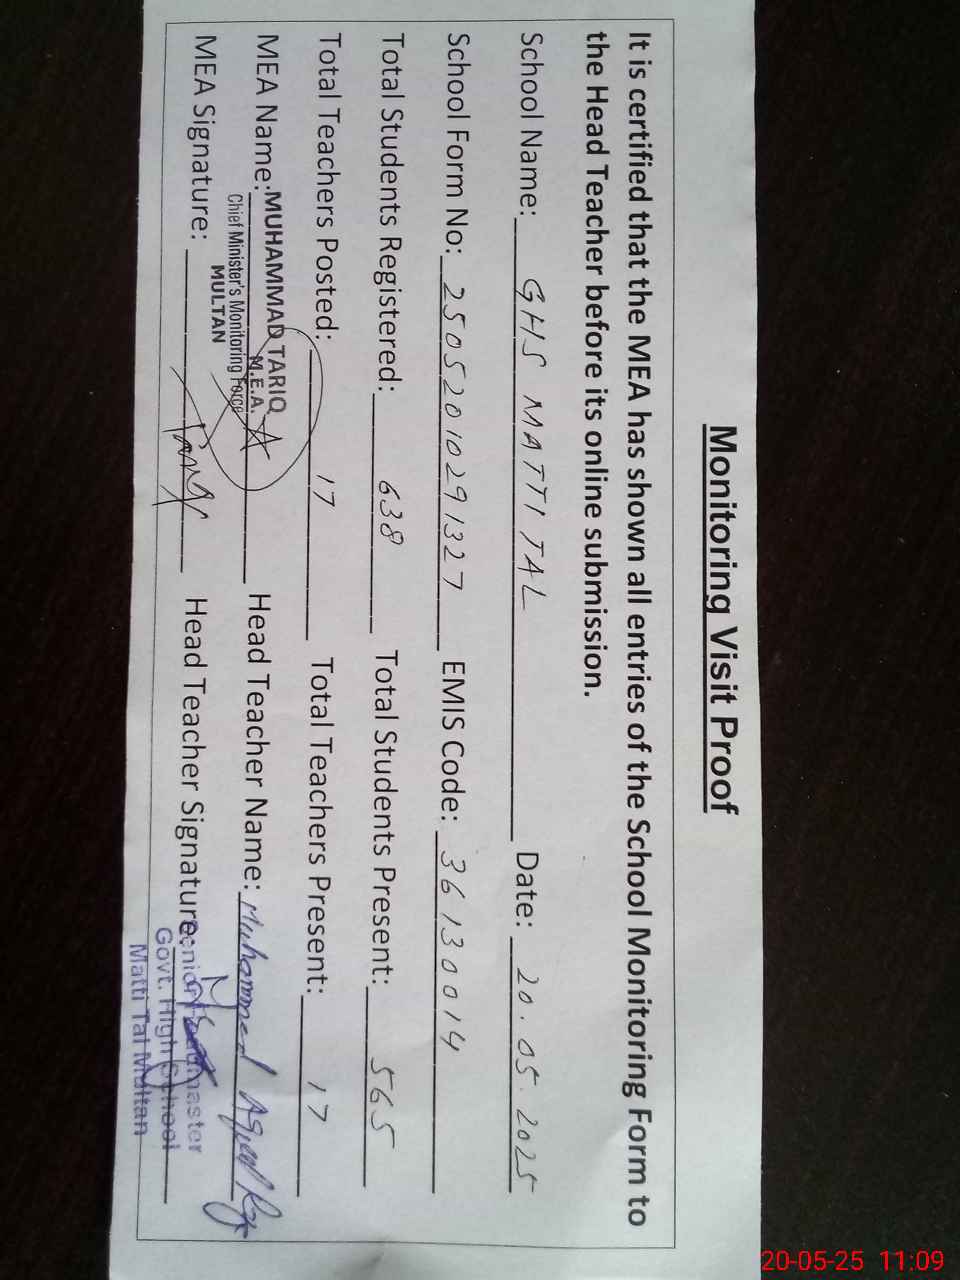 Monitoring Visit Proof
It is certified that the MEA has shown all entries of the School Monitoring Form to
the Head Teacher before its online submission.
School Name: GHS MATTI TAL Date: 20.05.2025
School Form No: 25052010291327 EMIS Code: 36130014
Total Students Registered: 638 Total Students Present: 565
Total Teachers Posted: 17 Total Teachers Present: 17
MEA Name: MUHAMMAD TARIQ Head Teacher Name: Muhammad
M.E.A.
Chief Minister's Monitoring Force
MULTAN
MEA Signature: Tariq Head Teacher Signature:
Senior Headmaster
Govt. High School
Matti Tal Multan
20-05-25 11:09